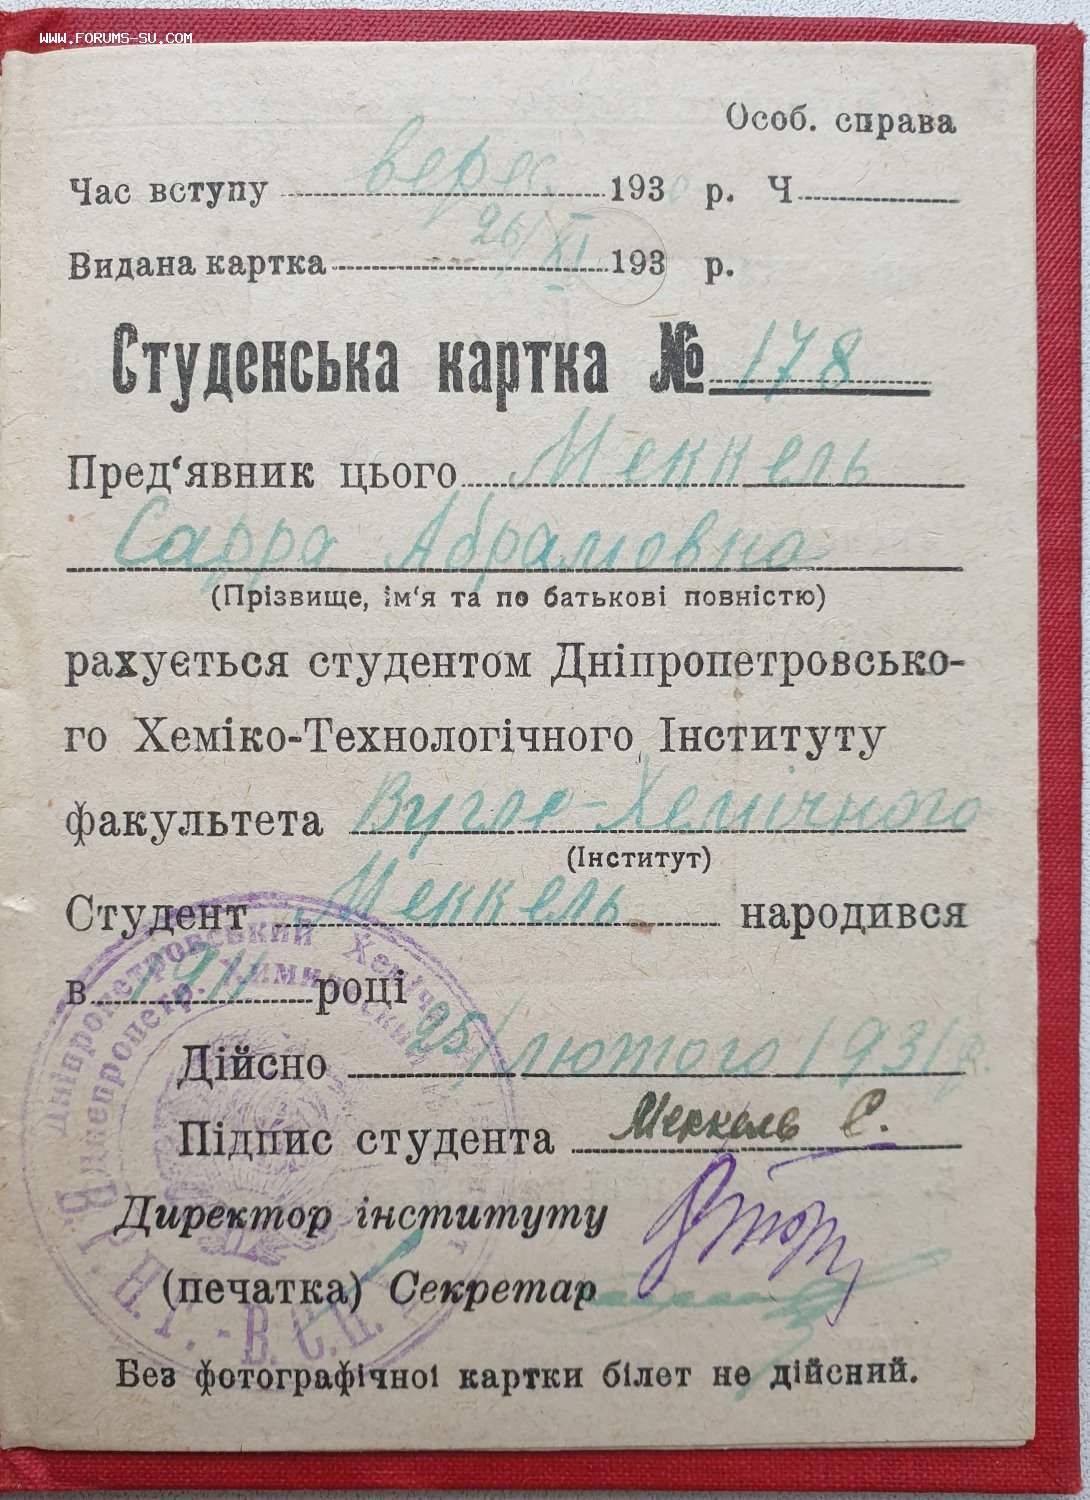 WWW.FORUMS-SU.COM
Особ. справа
Час вступу верес. 1930 р. Ч
Видана картка 26/XI 193 р.
Студенська картка № 178
Пред‘явник цього Меккель
Сарра Абрамовна
(Прізвище, ім‘я та по батькові повністю)
рахується студентом Дніпропетровсько-
го Хеміко-Технологічного Інституту
факультета Вугле-Хемічного
(Інститут)
Студент Меккель народився
в 1911 році
Дійсно 25/лютого 1931 р.
Підпис студента Меккель С.
Директор інституту
(печатка) Секретар
Без фотографічної картки білет не дійсний.
Дніпропетровський Хемічн
Днепропетр. Химический
В.С.Н.